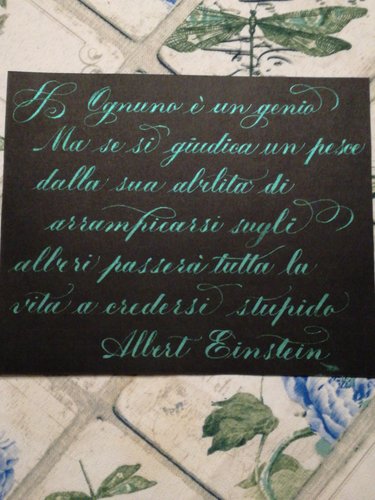 Ognuno è un genio
Ma se si giudica un pesce
dalla sua abilita di
arrampicarsi sugli
alberi passerà tutta la
vita a credersi stupido
Albert Einstein